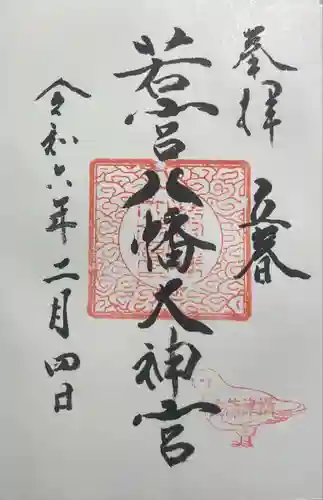 奉拝
立春
若宮八幡大神宮
令和六年二月四日